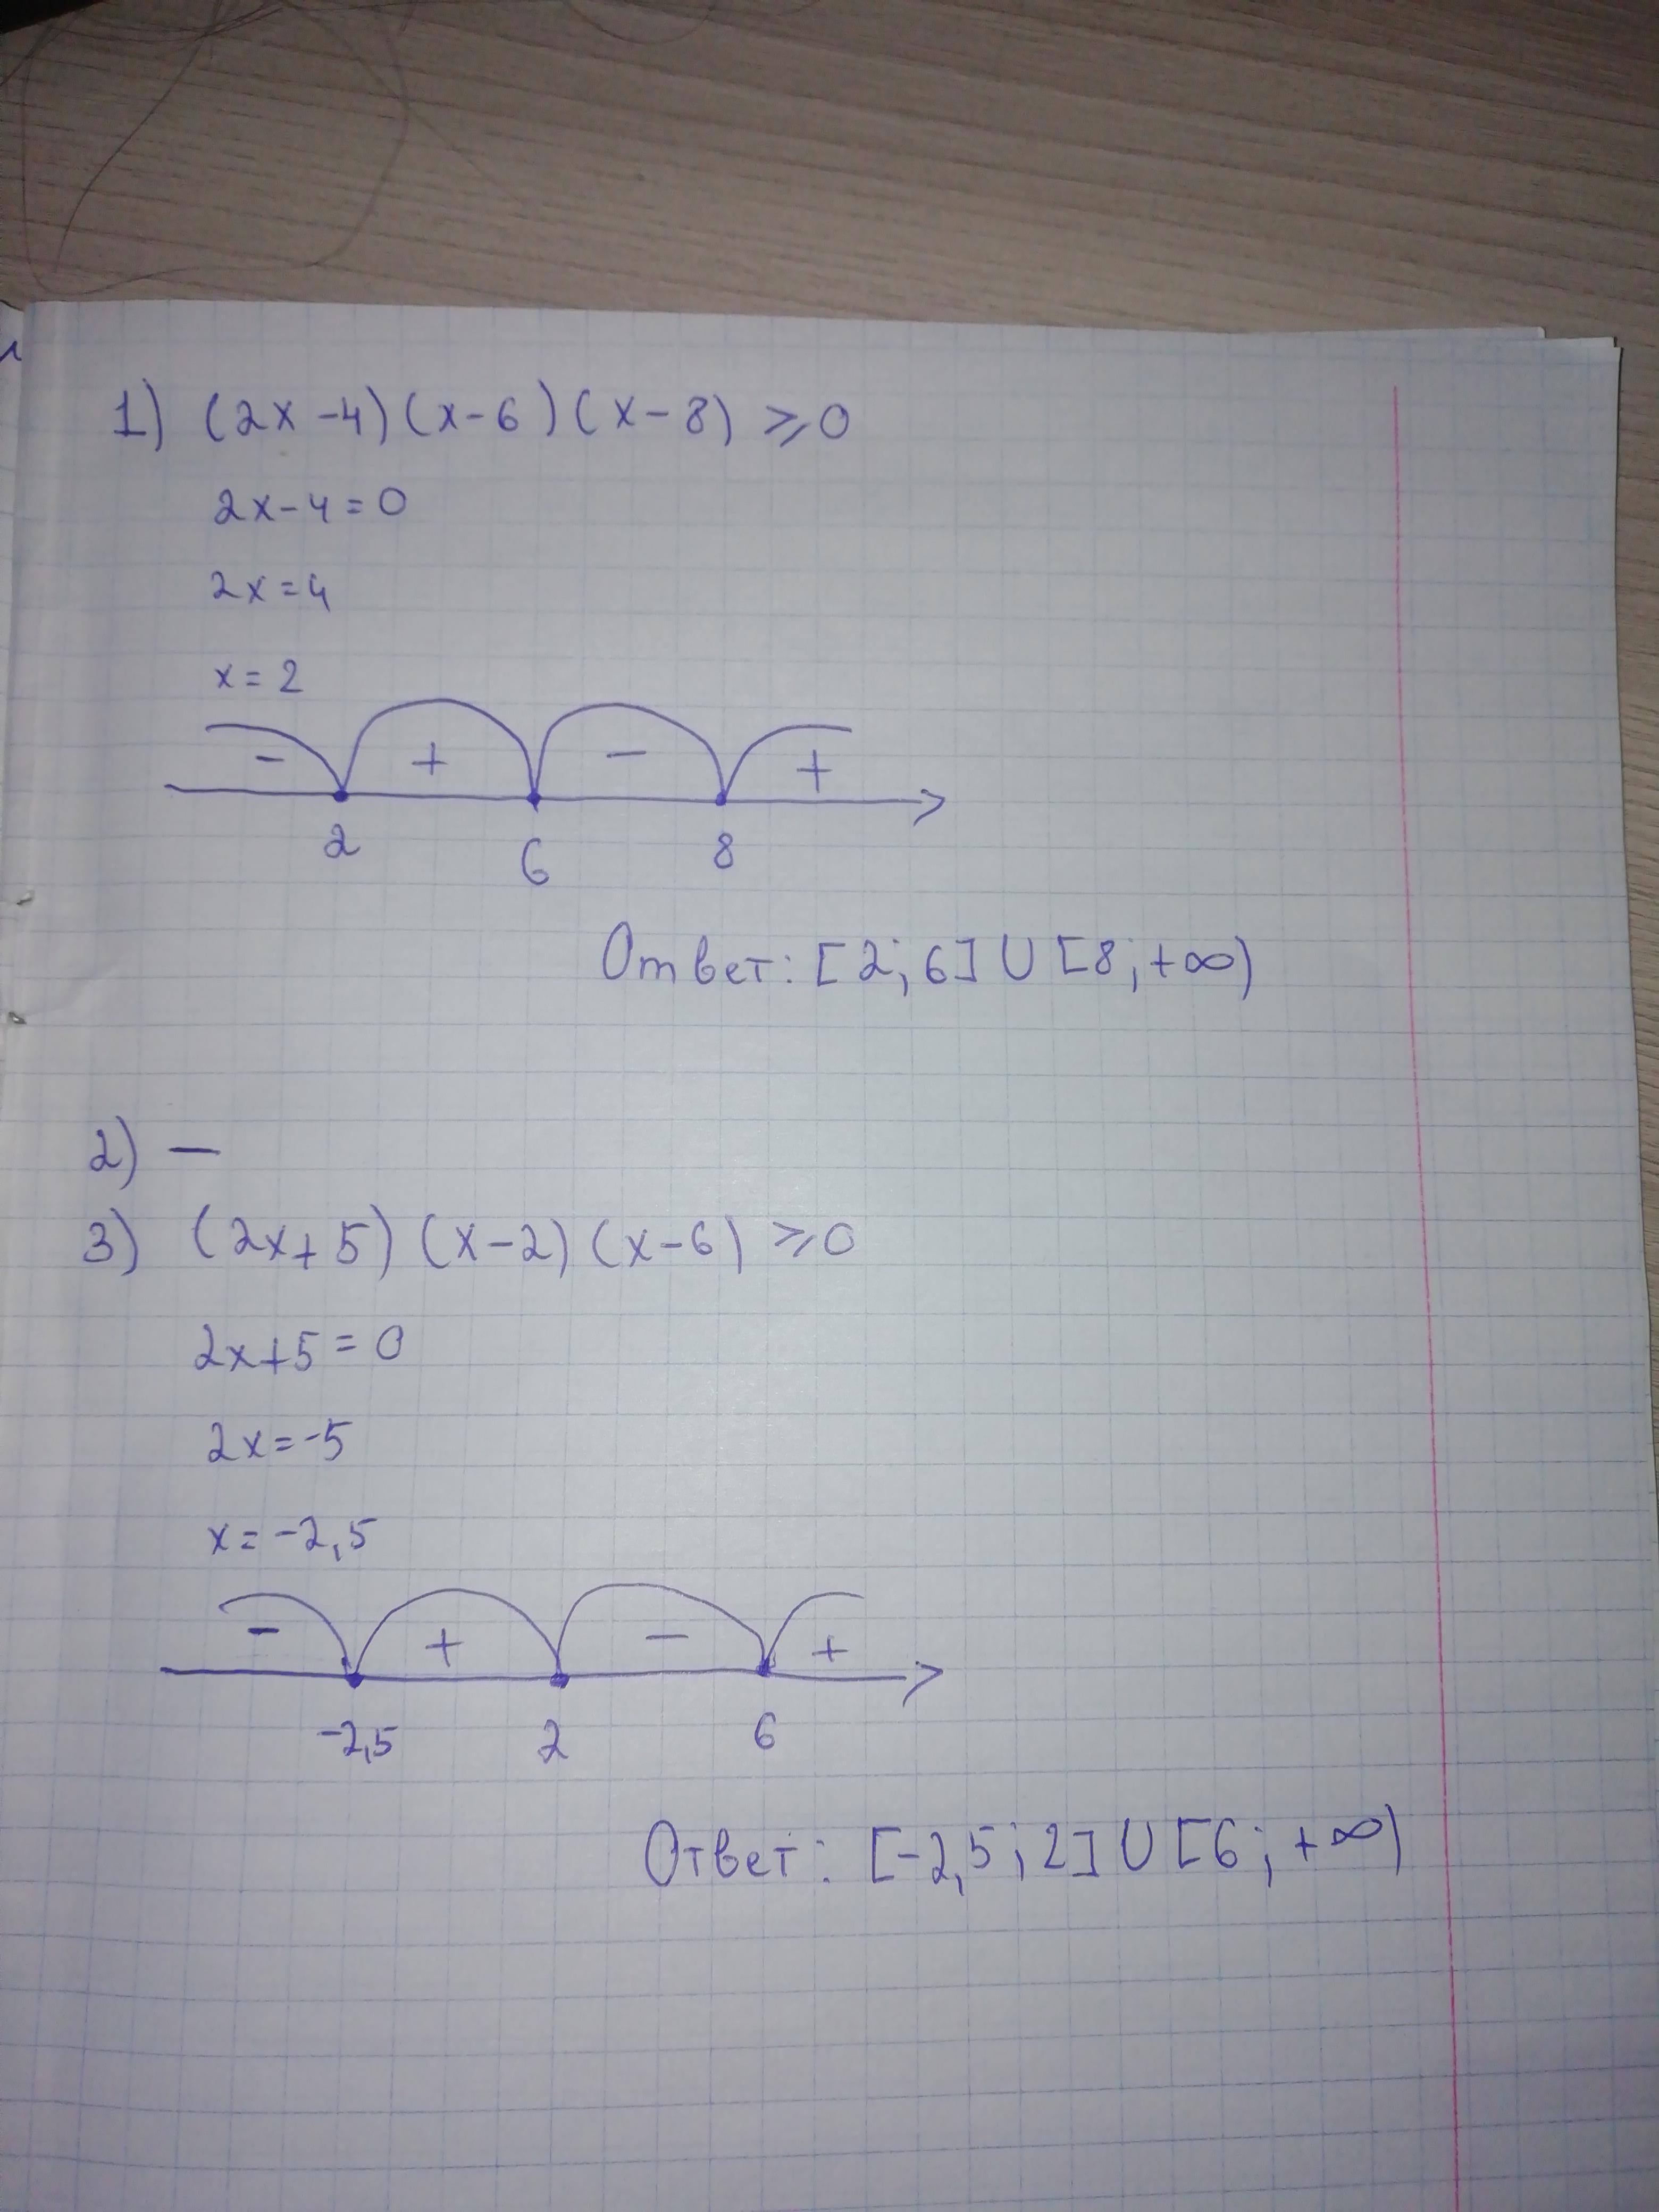 1) (2x-4)(x-6)(x-8) ⩾0
2x-4=0
2x=4
x=2
- + - +
2 6 8
Ответ: [2;6]∪[8;+∞)
2) —
3) (2x+5)(x-2)(x-6) ⩾0
2x+5=0
2x=-5
x=-2,5
- + - +
-2,5 2 6
Ответ: [-2,5;2]∪[6;+∞)